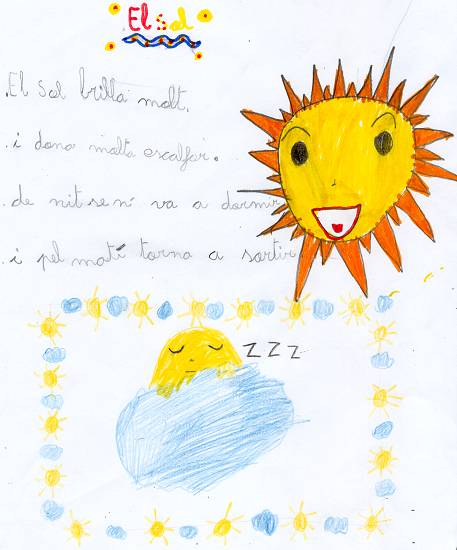 El sol
.El sol brilla molt.
.i dona molta escalfor.
.de nit se'n va a dormir
.i pel matí torna a sortir
ZZZ